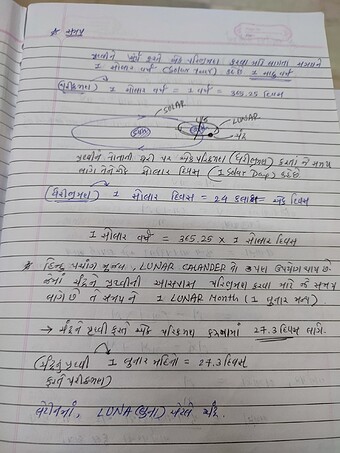 * સમય
પૃથ્વીને સૂર્ય ફરતે એક પરિભ્રમણ કરવા માટે લાગતા સમયને
1 સોલાર વર્ષ (Solar Year) કહે
(પરિક્રમણ) 1 સોલાર વર્ષ = 1 વર્ષ = 365.25 દિવસ
SOLAR
LUNAR
SUN
પૃથ્વી
ચંદ્ર
પૃથ્વીને પોતાની ધરી પર એક પરિભ્રમણ (પરિભ્રમણ) કરતાં જે સમય
લાગે તેને એક સોલાર દિવસ (1 Solar Day) કહે છે
(પરિભ્રમણ) 1 સોલાર દિવસ = 24 કલાક = એક દિવસ
1 સોલાર વર્ષ = 365.25 x 1 સોલાર દિવસ
* હિન્દુ પંચાંગ મુજબ, LUNAR CALANDER નો ઉપયોગ થાય છે.
જેમાં ચંદ્રને પૃથ્વીની આસપાસ પરિભ્રમણ કરવા માટે જે સમય
લાગે છે તે સમય ને 1 LUNAR Month (1 લુનાર મન્થ)
→ ચંદ્રને પૃથ્વી ફરતે એક પરિક્રમણ કરવામાં 27.3 દિવસ લાગે.
(ચંદ્રનું પૃથ્વી 1 લુનાર મહિનો = 27.3 દિવસ
ફરતે પરિક્રમણ)
લેટીનમાં, LUNA (લુના) એટલે ચંદ્ર.